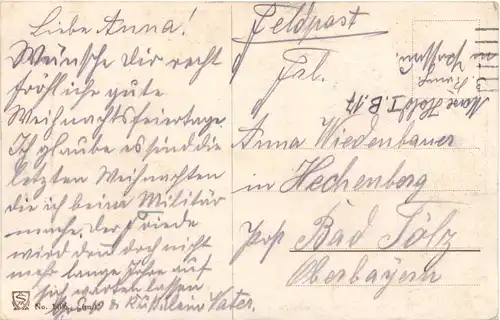 Liebe Anna!
Wünsche Dir recht
fröhliche gute
Weihnachtsfeiertage.
Ich glaube es sind die
letzten Weihnachten
die ich beim Militär
mache, der Friede
wird dent doch nicht
mehr lange Jahre auf
sich warten lassen
Vater.
Feldpost
Frl.
Anna Wiedenbauer
in Hechenberg
Post Bad Tölz
Oberbayern
I. B. 17
No.